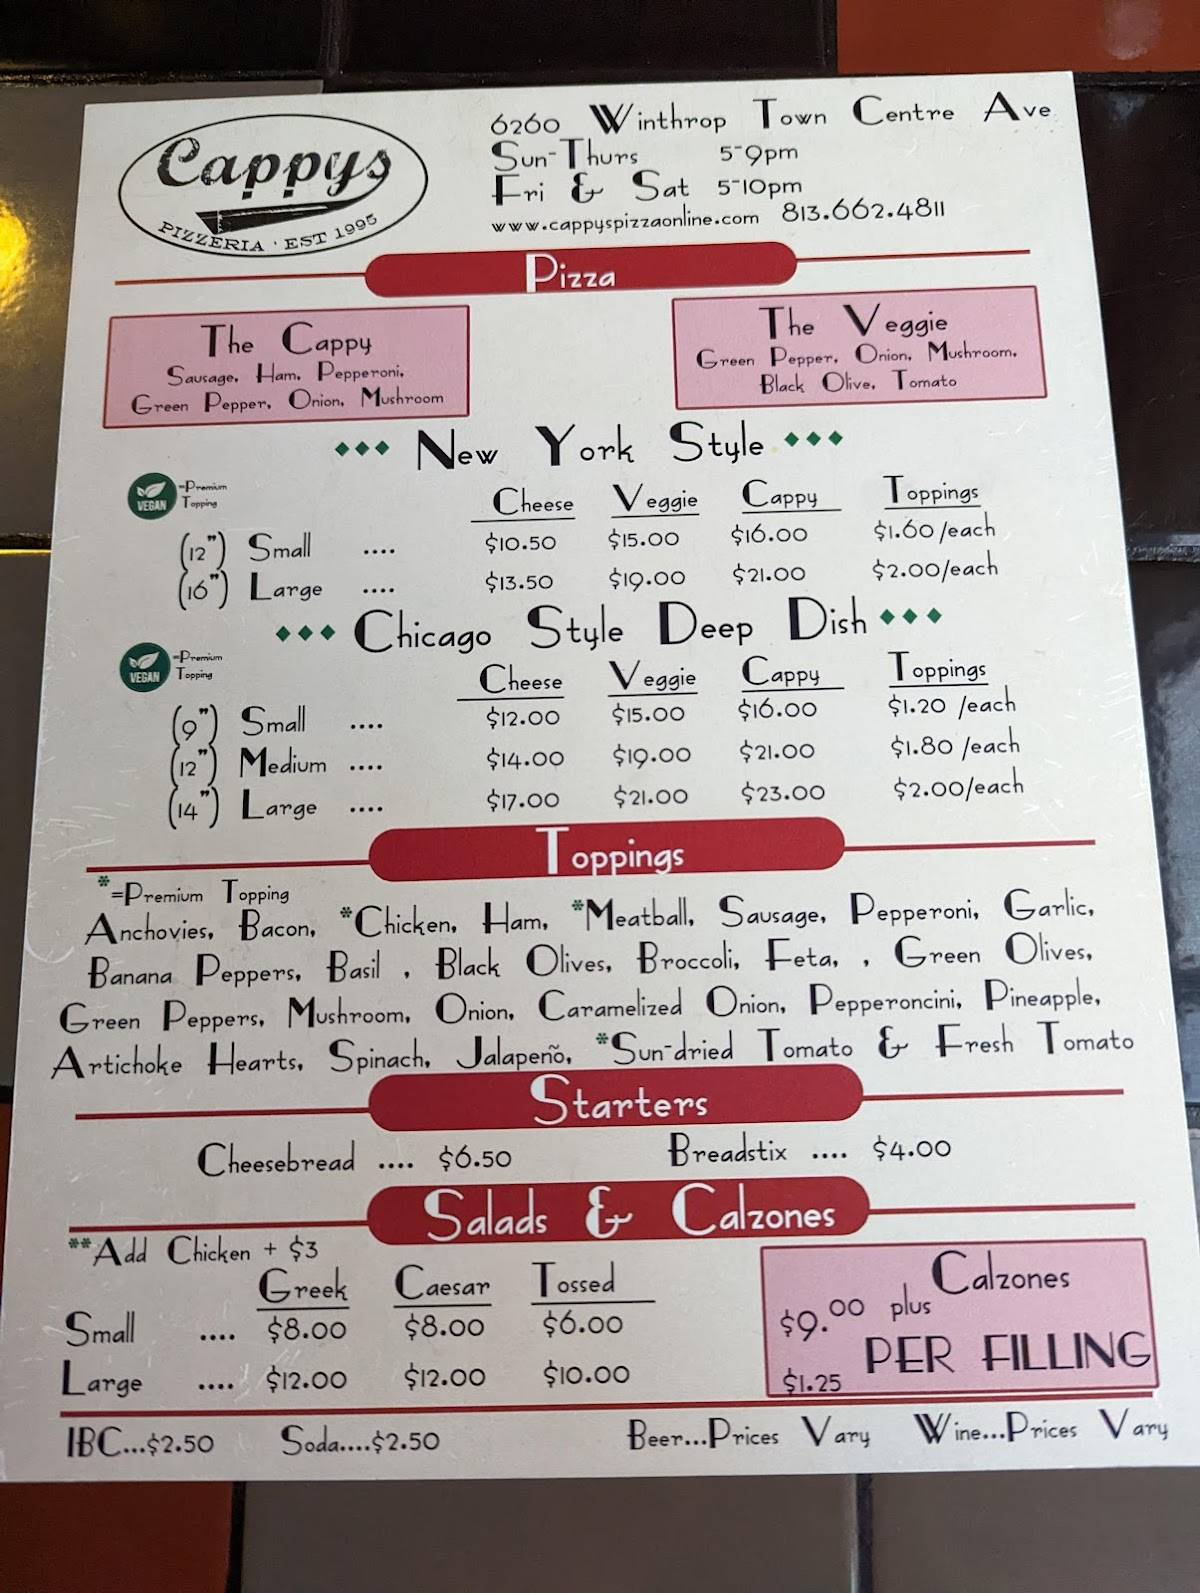 Cappys
PIZZERIA · EST 1995
6260 Winthrop Town Centre Ave
Sun-Thurs 5-9pm
Fri & Sat 5-10pm
www.cappyspizzaonline.com 813.662.4811
Pizza
The Cappy
Sausage, Ham, Pepperoni,
Green Pepper, Onion, Mushroom
The Veggie
Green Pepper, Onion, Mushroom,
Black Olive, Tomato
New York Style
VEGAN =Premium Topping
Cheese Veggie Cappy Toppings
(12") Small .... $10.50 $15.00 $16.00 $1.60/each
(16") Large .... $13.50 $19.00 $21.00 $2.00/each
Chicago Style Deep Dish
VEGAN =Premium Topping
Cheese Veggie Cappy Toppings
(9") Small .... $12.00 $15.00 $16.00 $1.20 /each
(12") Medium .... $14.00 $19.00 $21.00 $1.80 /each
(14") Large .... $17.00 $21.00 $23.00 $2.00/each
Toppings
*=Premium Topping
Anchovies, Bacon, *Chicken, Ham, *Meatball, Sausage, Pepperoni, Garlic,
Banana Peppers, Basil , Black Olives, Broccoli, Feta, , Green Olives,
Green Peppers, Mushroom, Onion, Caramelized Onion, Pepperoncini, Pineapple,
Artichoke Hearts, Spinach, Jalapeño, *Sun-dried Tomato & Fresh Tomato
Starters
Cheesebread .... $6.50 Breadstix .... $4.00
Salads & Calzones
**Add Chicken + $3
Greek Caesar Tossed
Small .... $8.00 $8.00 $6.00
Large .... $12.00 $12.00 $10.00
Calzones
$9.00 plus
$1.25 PER FILLING
IBC...$2.50 Soda....$2.50 Beer...Prices Vary Wine...Prices Vary